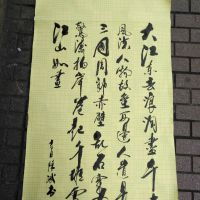 大江东去浪淘尽千
风流人物故垒西边人道是
三国周郎赤壁乱石穿
驚涛拍岸卷起千堆雪
江山如画
书